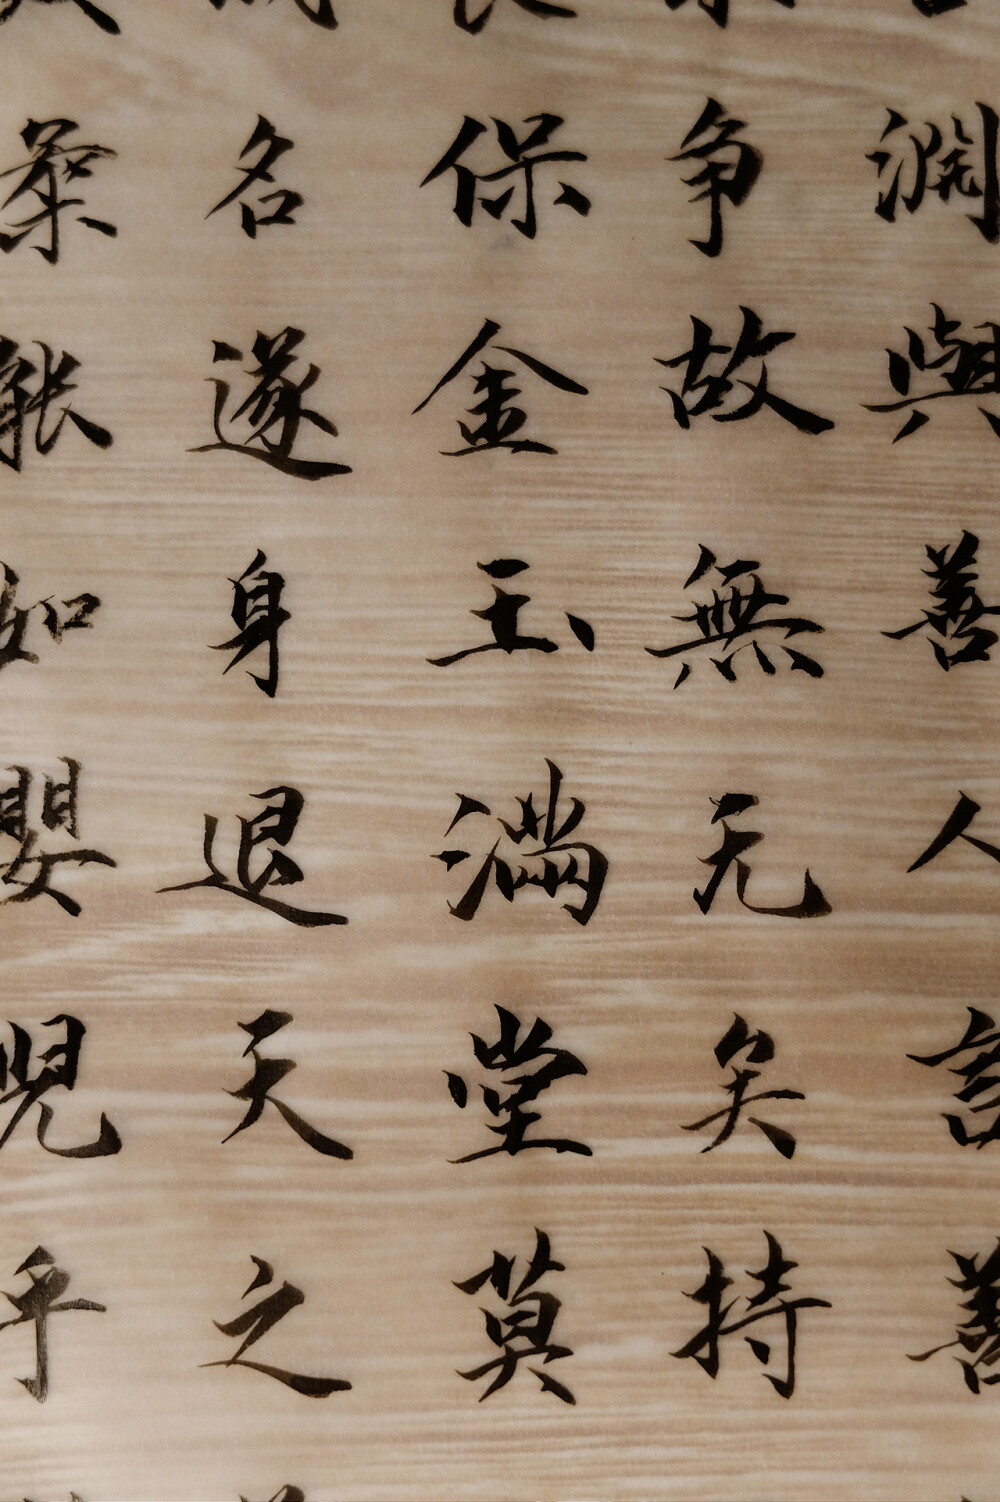 淵與善人言善
争故無尤矣持
保金玉滿堂莫
名遂身退天之
柔能如嬰兒乎